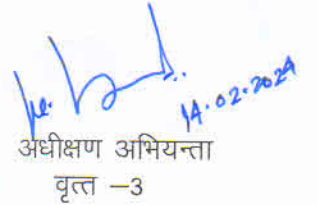 14.02.2024
अधीक्षण अभियन्ता
वृत्त –3